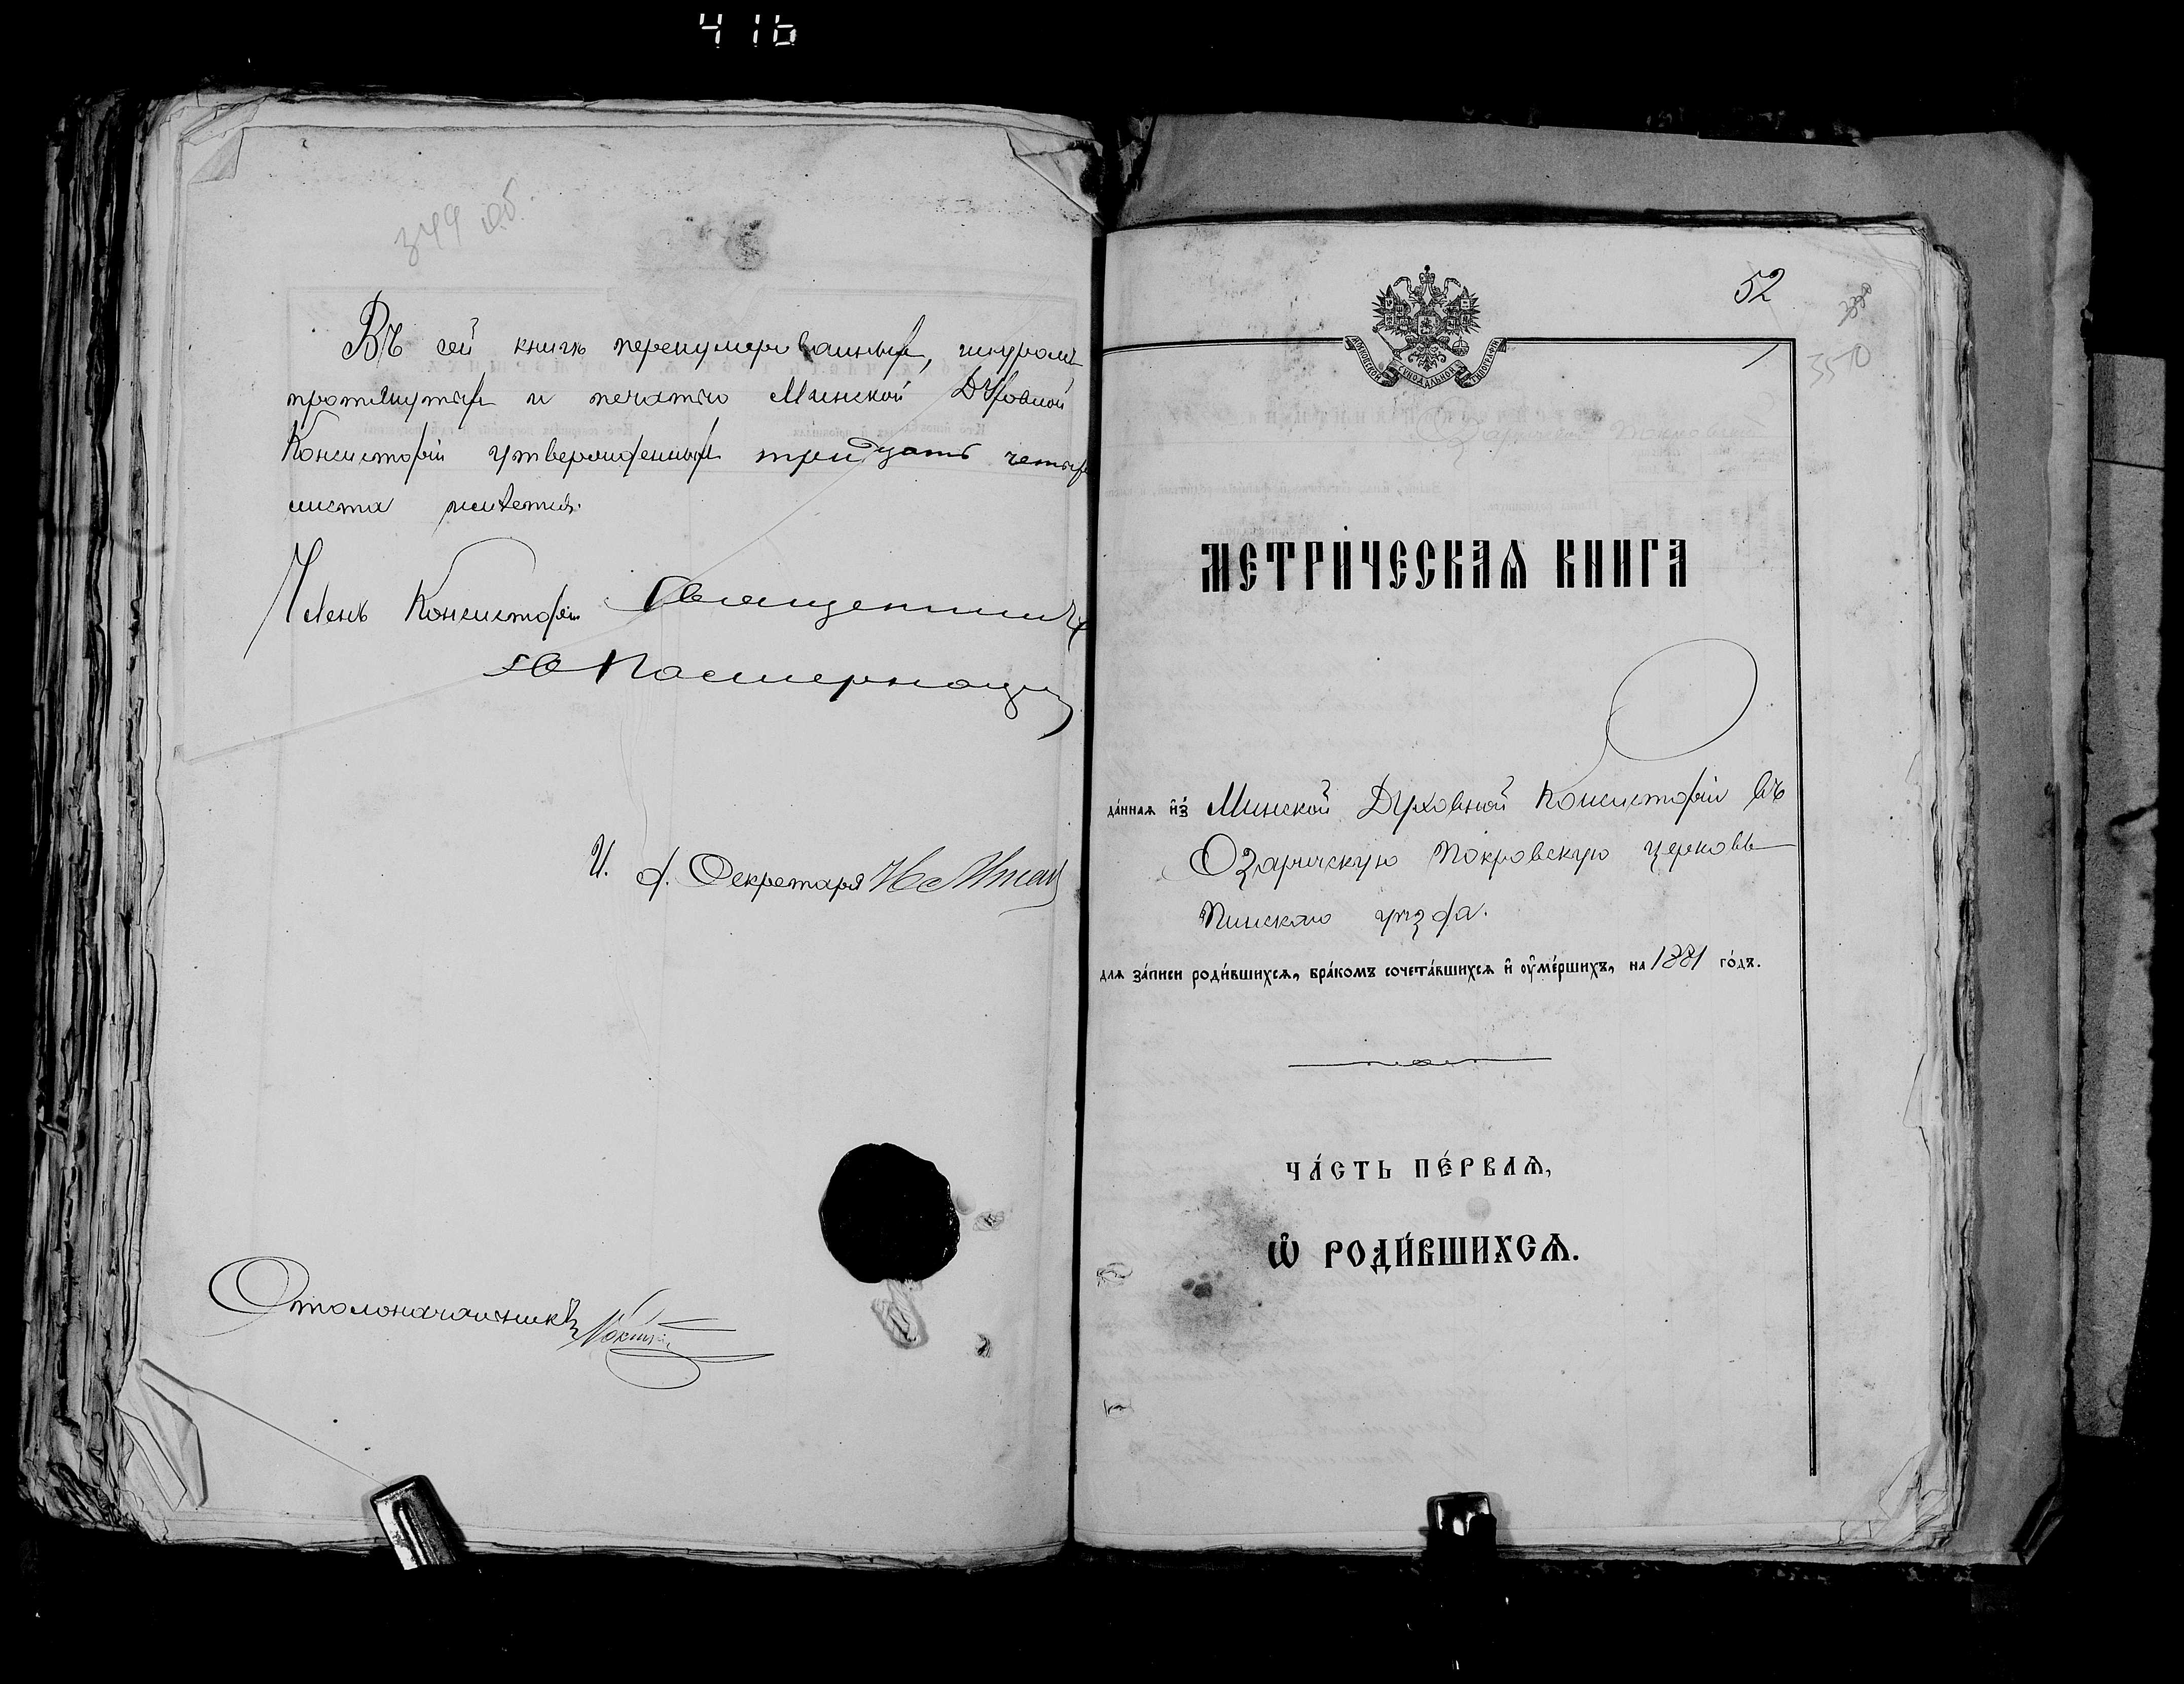 416
349 об.
Въ сей книгѣ перенумерованныхъ, шнуромъ
протянутыхъ и печатью Минской Духовной
Консисторіи утвержденныхъ тридцать четыре
листа
Членъ Консисторіи Священникъ
И. ф. Секретаря
Столоначальникъ
52
350
МОСКОВСКОЙ СѴНОДАЛЬНОЙ ТИПОГРАФІИ
МЕТРИ́ЧЕСКАѦ КНИГА
да́ннаѧ и҆з̾ Минской Духовной Консисторіи въ
Озаричскую Покровскую церковь
Пинскаго уѣзда.
длѧ за́писи роди́вшихсѧ, бра́комъ сочета́вшихсѧ и҆ ѹ҆ме́ршихъ, на 1881 го́дъ.
ЧА́СТЬ ПЕ́РВАѦ,
Ѡ҆ РОДИ́ВШИХСѦ.